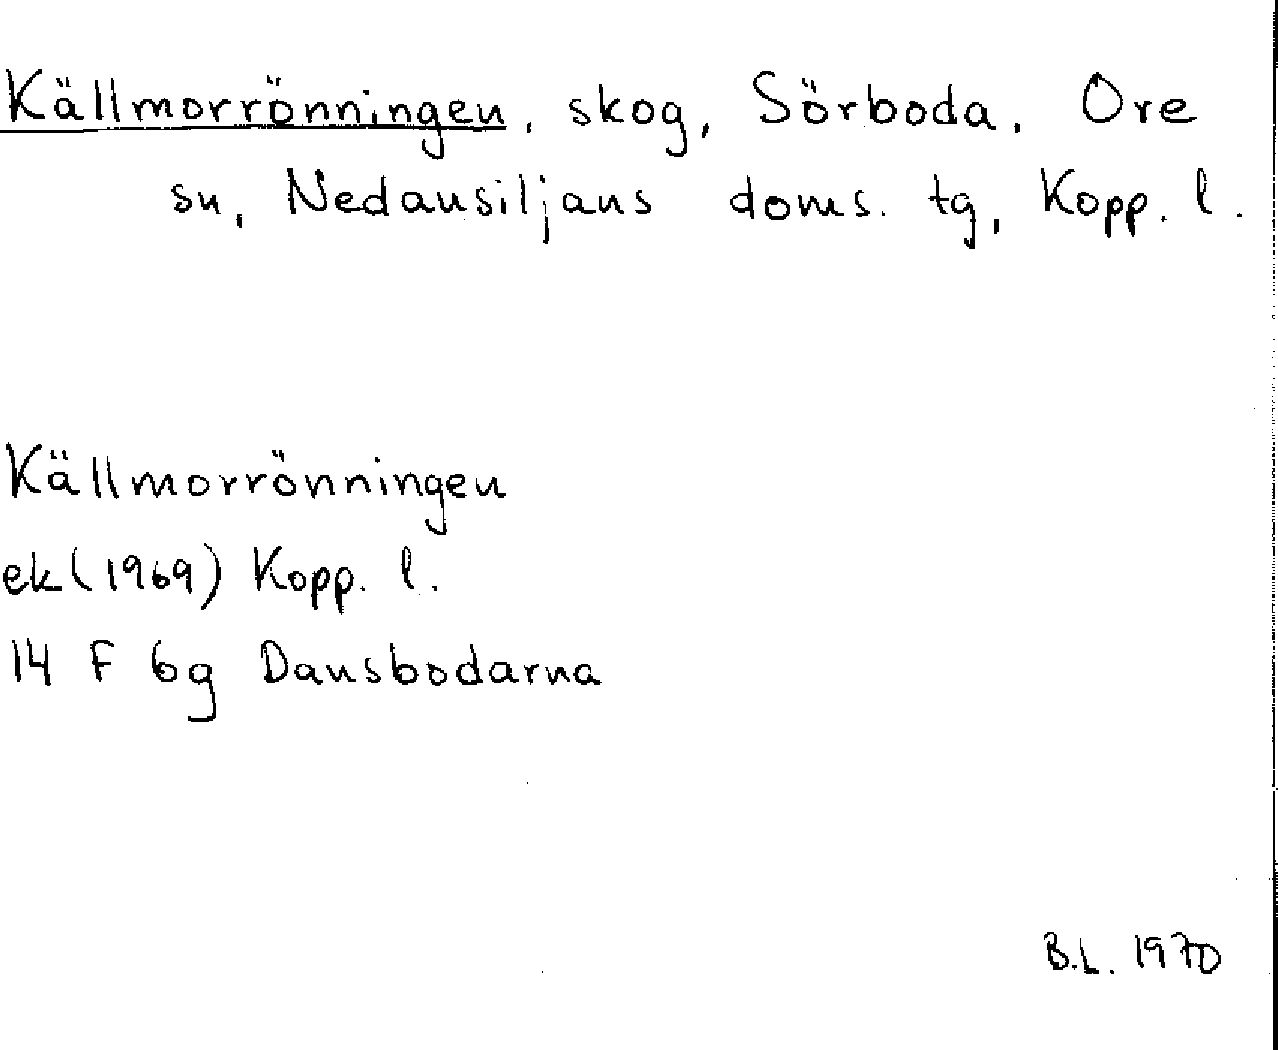 Källmorrönningen, skog, Sörboda, Ore
sn, Nedansiljans doms. tg, Kopp. l.
Källmorrönningen
ek (1969) Kopp. l.
14 F 6g Dansbodarna
B.L. 1970